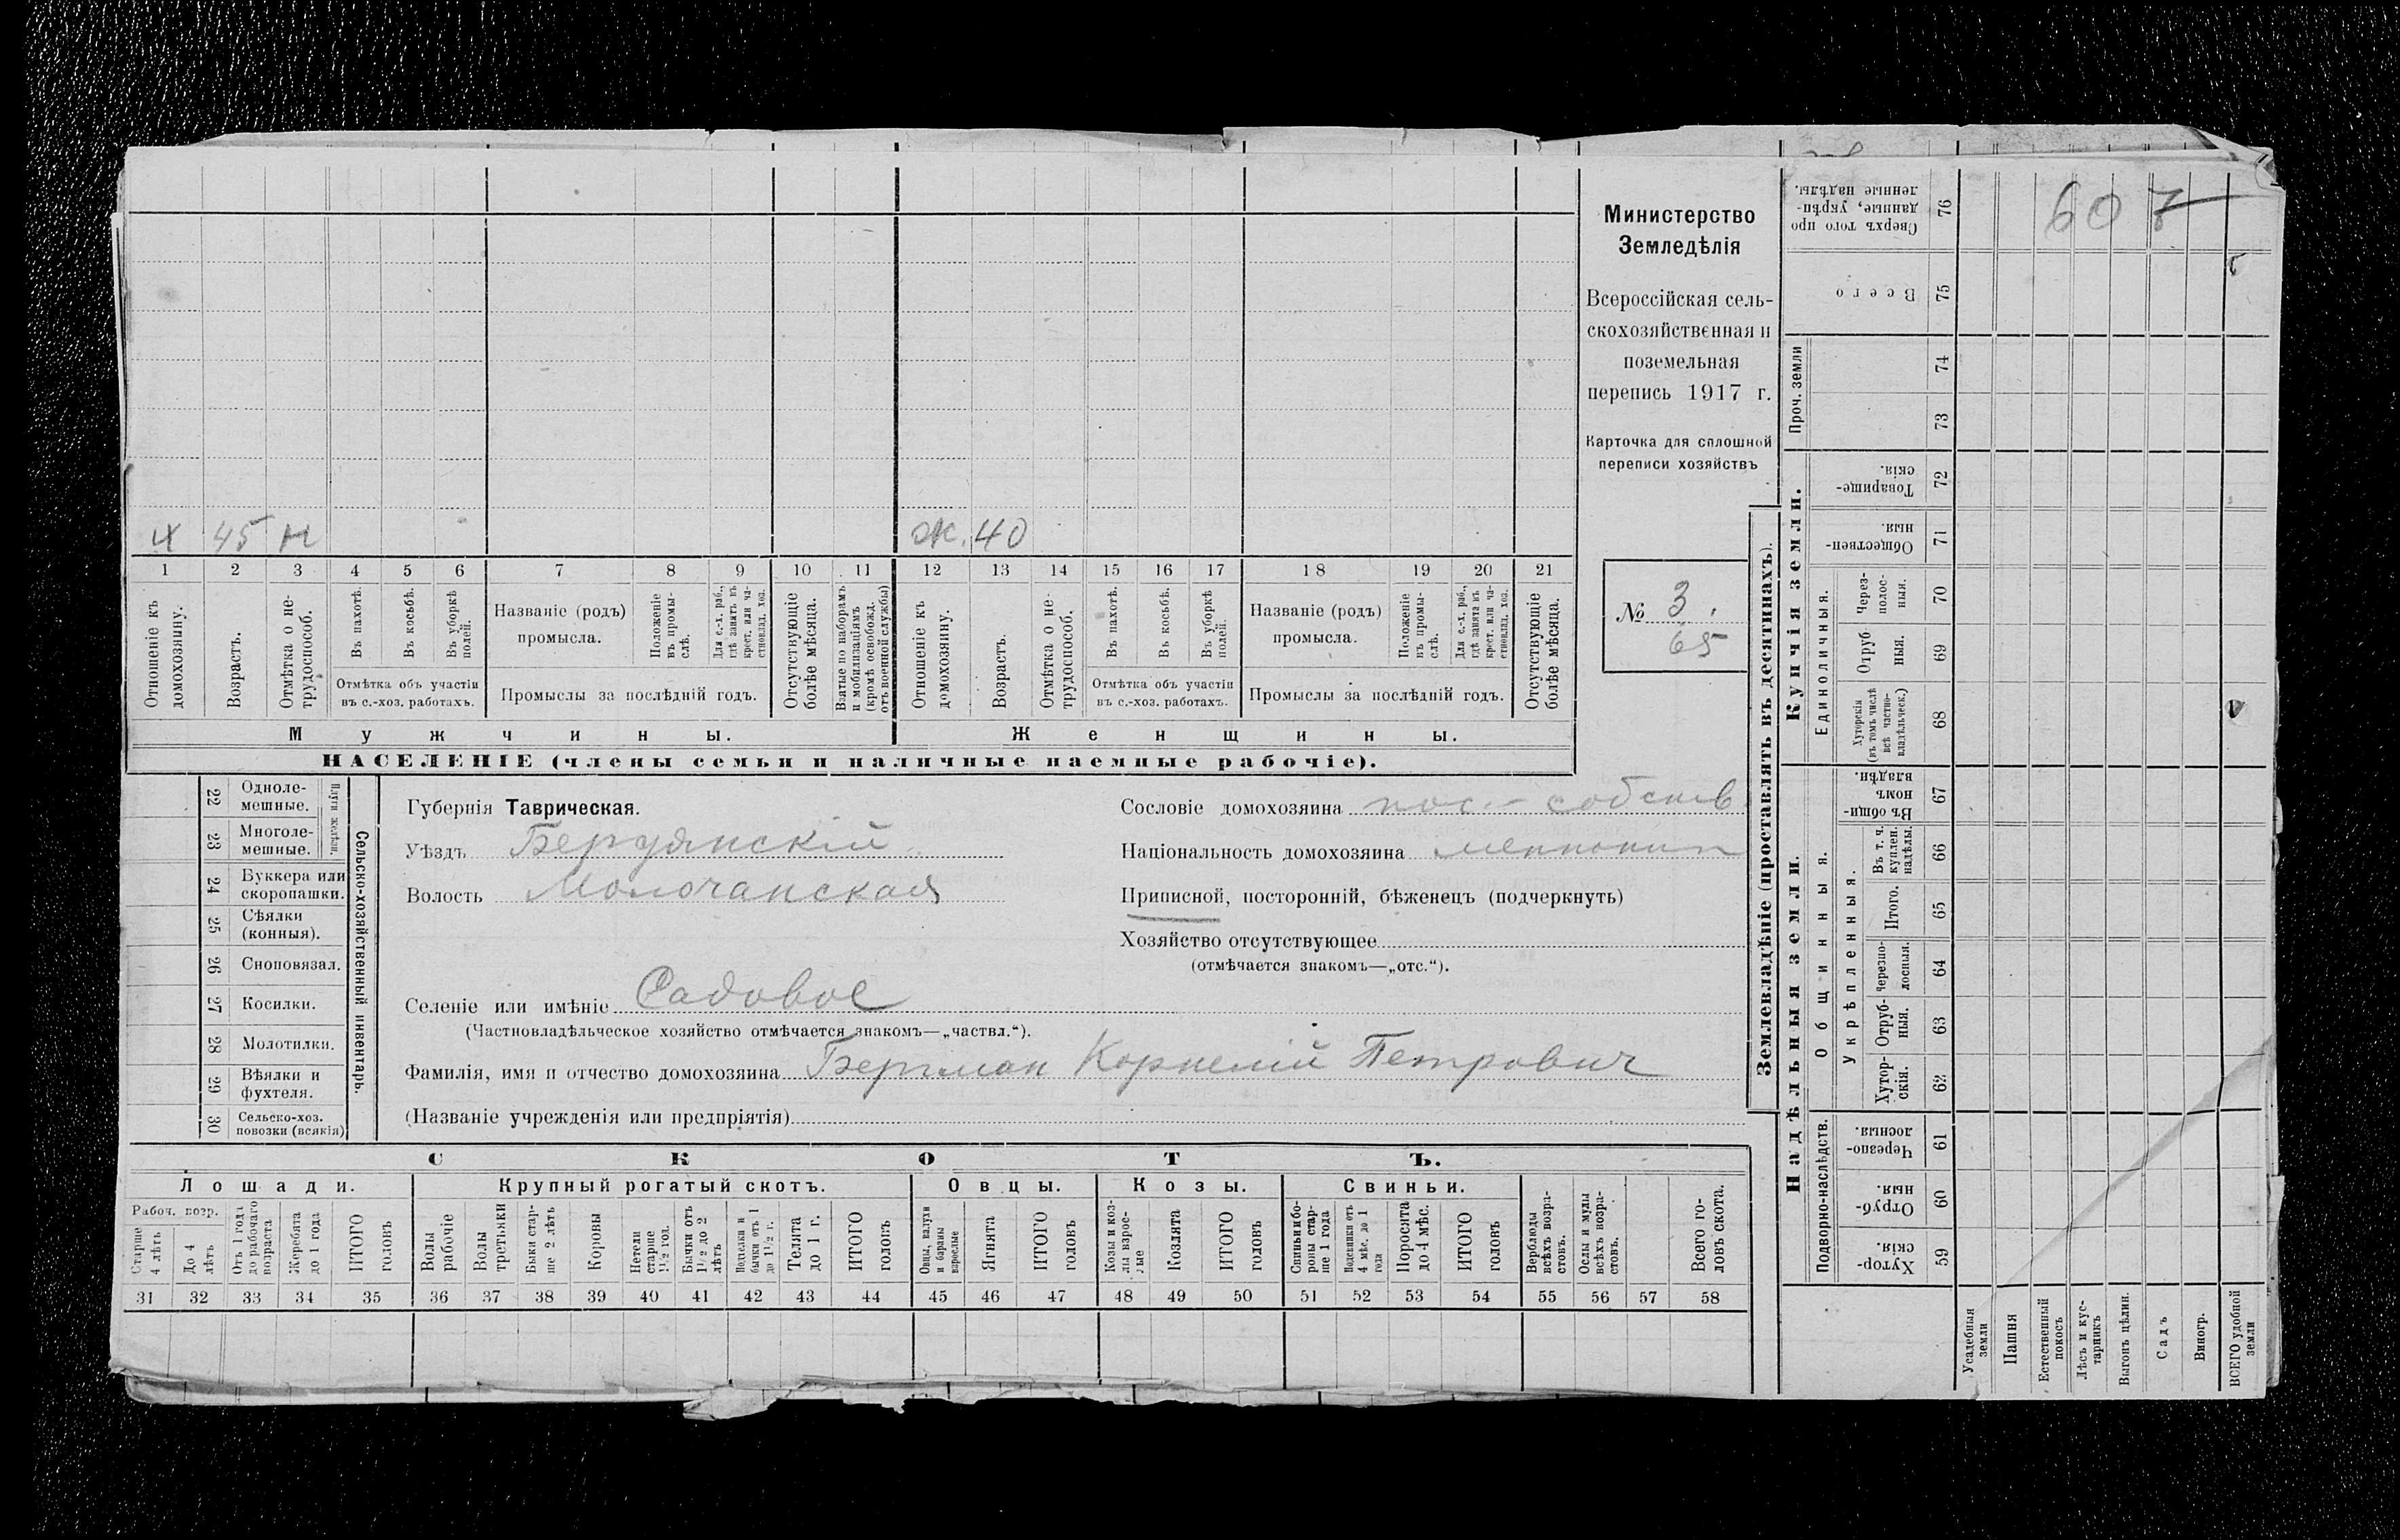 Министерство
Земледѣлія
Всероссійская сель-
скохозяйственная и
поземельная
перепись 1917 г.
Карточка для сплошной
переписи хозяйствъ
№ 3.
65
х 45 н
ж. 40
1 2 3 4 5 6 7 8 9 10 11 12 13 14 15 16 17 18 19 20 21
Отношеніе къ домохозяину.
Возрастъ.
Отмѣтка о не-трудоспособ.
Въ пахотѣ.
Въ косьбѣ.
Въ уборкѣ полей.
Отмѣтка объ участіи
въ с.-хоз. работахъ.
Названіе (родъ)
промысла.
Положеніе въ промы-слѣ.
Для с.-х. раб., гдѣ занятъ въ крест. или ча-стновлад. хоз.
Промыслы за послѣдній годъ.
Отсутствующіе болѣе мѣсяца.
Взятые по наборамъ и мобилизаціямъ (кромѣ освобожд. отъ военной службы)
Отношеніе къ домохозяину.
Возрастъ.
Отмѣтка о не-трудоспособ.
Въ пахотѣ.
Въ косьбѣ.
Въ уборкѣ полей.
Отмѣтка объ участіи
въ с.-хоз. работахъ.
Названіе (родъ)
промысла.
Положеніе въ промы-слѣ.
Для с.-х. раб., гдѣ занята въ крест. или ча-стновлад. хоз.
Промыслы за послѣдній годъ.
Отсутствующіе болѣе мѣсяца.
Мужчины.
Женщины.
НАСЕЛЕНІЕ (члены семьи и наличные наемные рабочіе).
22 Одноле-мешные.
23 Многоле-мешные.
Плуги желѣзн.
24 Буккера или скоропашки.
25 Сѣялки (конныя).
26 Сноповязал.
27 Косилки.
28 Молотилки.
29 Вѣялки и фухтеля.
30 Сельско-хоз. повозки (всякія)
Сельско-хозяйственный инвентарь.
Губернія Таврическая.
Уѣздъ Бердянскій
Волость Молочанская
Селеніе или имѣніе Садовое
(Частновладѣльческое хозяйство отмѣчается знакомъ—„частвл.“).
Фамилія, имя и отчество домохозяина Бергман Корнелій Петрович
(Названіе учрежденія или предпріятія)
Сословіе домохозяина пос.- собств
Національность домохозяина меннонит
Приписной, посторонній, бѣженецъ (подчеркнуть)
Хозяйство отсутствующее
(отмѣчается знакомъ—„отс.“).
СКОТЪ.
Лошади.
Крупный рогатый скотъ.
Овцы.
Козы.
Свиньи.
Рабоч. возр.
Старше 4 лѣтъ
До 4 лѣтъ
Отъ 1 года до рабочаго возраста
Жеребята до 1 года
ИТОГО головъ
Волы рабочіе
Волы третьяки
Быки стар-ше 2 лѣтъ
Коровы
Нетели старше 1½ год.
Бычки отъ 1½ до 2 лѣтъ
Подтелки и бычки отъ 1 до 1½ г.
Телята до 1 г.
ИТОГО головъ
Овцы, валухи и бараны взрослые
Ягнята
ИТОГО головъ
Козы и коз-лы взрос-лые
Козлята
ИТОГО головъ
Свиньи и бо-ровы стар-ше 1 года
Подсвинки отъ 4 мѣс. до 1 года
Поросята до 4 мѣс.
ИТОГО головъ
Верблюды всѣхъ возра-стовъ.
Ослы и мулы всѣхъ возра-стовъ.
Всего го-ловъ скота.
31 32 33 34 35 36 37 38 39 40 41 42 43 44 45 46 47 48 49 50 51 52 53 54 55 56 57 58
Землевладѣніе (проставлять въ десятинахъ).
Надѣльныя земли.
Купчія земли.
Проч. земли
Подворно-наслѣдств.
Общинныя.
Укрѣпленныя.
Единоличныя.
Сверхъ того про данные, укрѣп-ленные надѣлы. 76
Всего 75
74
73
Товарище-скія. 72
Обществен-ныя. 71
Через-полос-ныя. 70
Отруб ныя. 69
Хуторскія (въ томъ числѣ всѣ частно-владѣльческ.) 68
Въ общи-номъ владѣн. 67
Въ т. ч. куплен. надѣлы. 66
Итого. 65
черезпо-лосныя. 64
Отруб-ныя. 63
Хутор-скія. 62
Черезпо-лосныя. 61
Отруб-ныя. 60
Хутор-скія. 59
Усадебныя земли
Пашня
Естественный покосъ
Лѣсъ и кус-тарникъ
Выгонъ цѣлин.
Садъ
Виногр.
ВСЕГО удобной земли
607